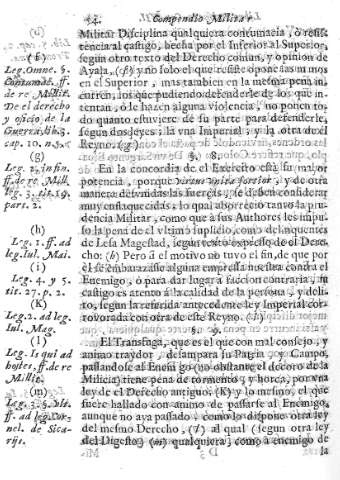 54. Compendio Militar
Militar Disciplina qualquiera contumacia, ò resis-
tencia al castigo, hecha por el Inferior al Superior,
segun otro texto del Derecho comun, y opinion de
Ayala, (f) y no solo el que resiste oponcias manos
en el Superior, mas tambien en la mesma pena in-
curren, los que pudiendo defenderle de los que in-
tentan, ò le hazen alguna violencia, no ponen to-
do quanto estuviere de su parte para defenderle,
segun dos leyes; la vna Imperial, y la otra de el
Reyno. (g)
§. 8.
En la concordia de el Exercito està su mayor
potencia, porque virtus vnita fortior, y de otra
manera devnidas las fuerças, se deben considerar
muy enflaquecidas; lo qual aborreciò tanto la pru-
dencia Militar, como que à sus Authores les impu-
so la pena de el vltimo suplicio, como delinquentes
de Lesa Magestad, segun texto expresso de el Dere-
cho: (h) Pero si el motivo no tuvo el fin, de que por
èl se embarazasse alguna empressa nuestra contra el
Enemigo, ò para dar lugar à faccion contraria, su
castigo es atento à la calidad de la persona, y deli-
to, segun la referida antecedente ley Imperial cor-
rovorada con otra de este Reyno. (i)
§. 9.
El Transfuga, que es el que con mal consejo, y
animo traydor, desampara su Patria, y Campo,
passandose al Enemigo (no obstante el decoro de la
Milicia) tiene pena de tormento, y horca, por vna
ley de el Derecho antiguo. (K) y lo mesmo, el que
fuere hallado con animo de passarse al Enemigo,
aunque no aya passado, como lo dispone otra ley
del mesmo Derecho, (l) al qual (segun otra ley
del Digesto) (m) qualquiera, como à enemigo de
la
(f)
Leg. Omne. §.
ff.
de re Milit.
De el derecho
y oficio de la
Guerra, lib. 3.
cap. 10. n. 5.
(g)
Leg. 3. in fin.
ff. de re Mil.
leg. 3. tit. 19.
part. 2.
(h)
Leg. 1. ff. ad
leg. Iul. Mai.
(i)
Leg. 4. y 5.
tit. 27. p. 2.
(K)
Leg. 2. ad leg.
Iul. Mag.
(l)
Leg. Is qui ad
hostes, ff. de re
Milit.
(m)
Leg. 3. §.
ff. ad leg. Cor-
nel. de Sica-
rijs.